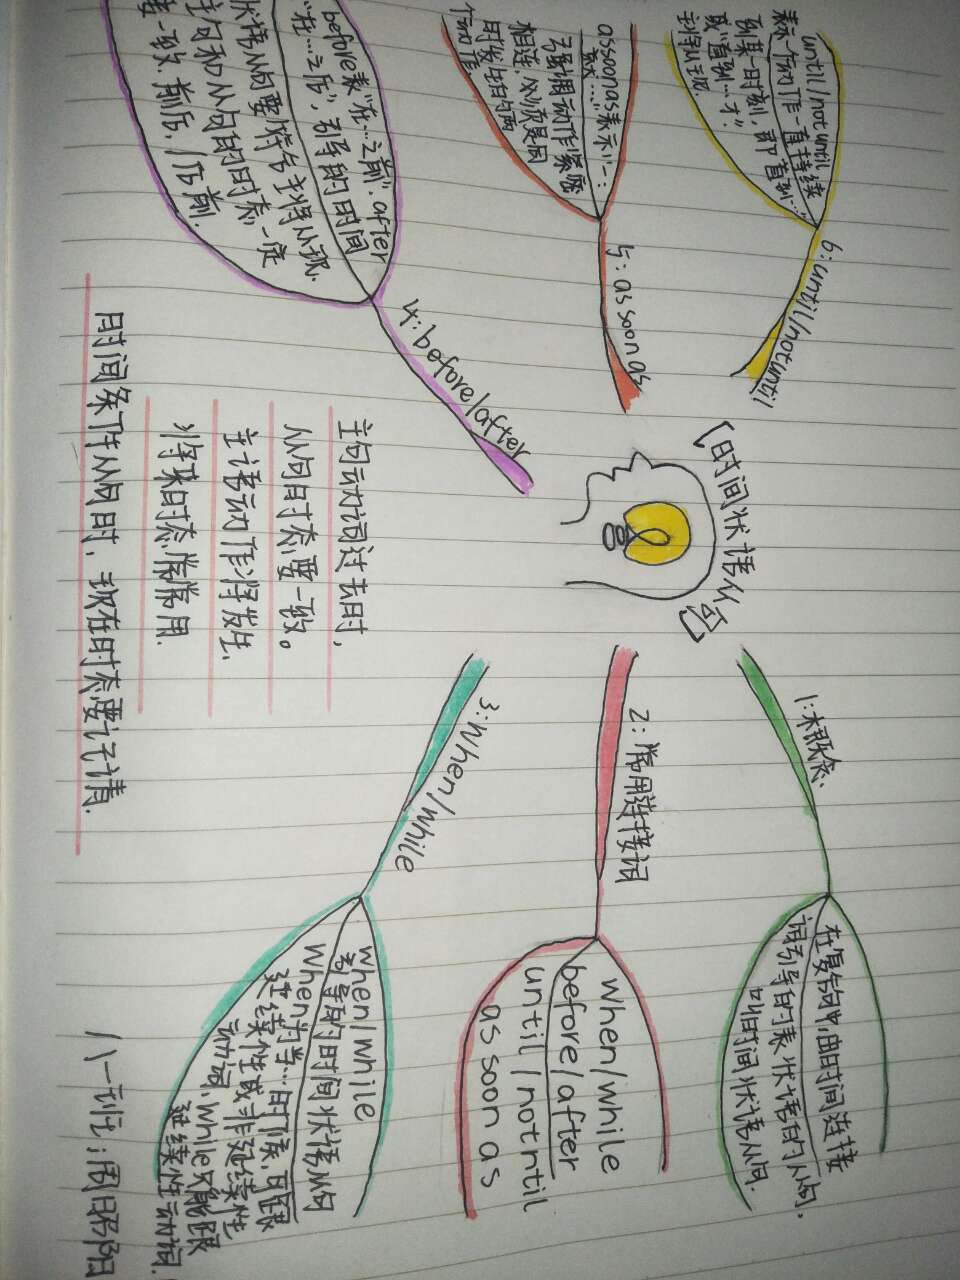 【时间状语从句】
1:概念.
在复合句中,由时间连接
词引导的表状语的从句,
叫时间状语从句.
2:常用连接词
when/while
before/after
until/notuntil
as soon as
3:When/while
when/while
引导的时间状语从句
When为当…时候,可跟
延续性或非延续性
动词,while只能跟
延续性动词.
4:before/after
before表“在…之前”,after
“在…之后”,引导的时间
状语从句要符合主将从现.
主句和从句的时态一定
要一致.前后,/后前.
5:as soon as
as soon as表示“一:
就…”
强调动作紧密
相连,从流是因
时发生的两
个动作.
6:until/notuntil
until/notuntil
表示一个动作一直持续
到某一时刻,即“直到…”
或“直到…才”.
主将从现.
主句动词过去时,
从句时态要一致。
主语动作将发生,
将来时态常常用.
时间条件从句时,现在时态要记清.
八一班:周